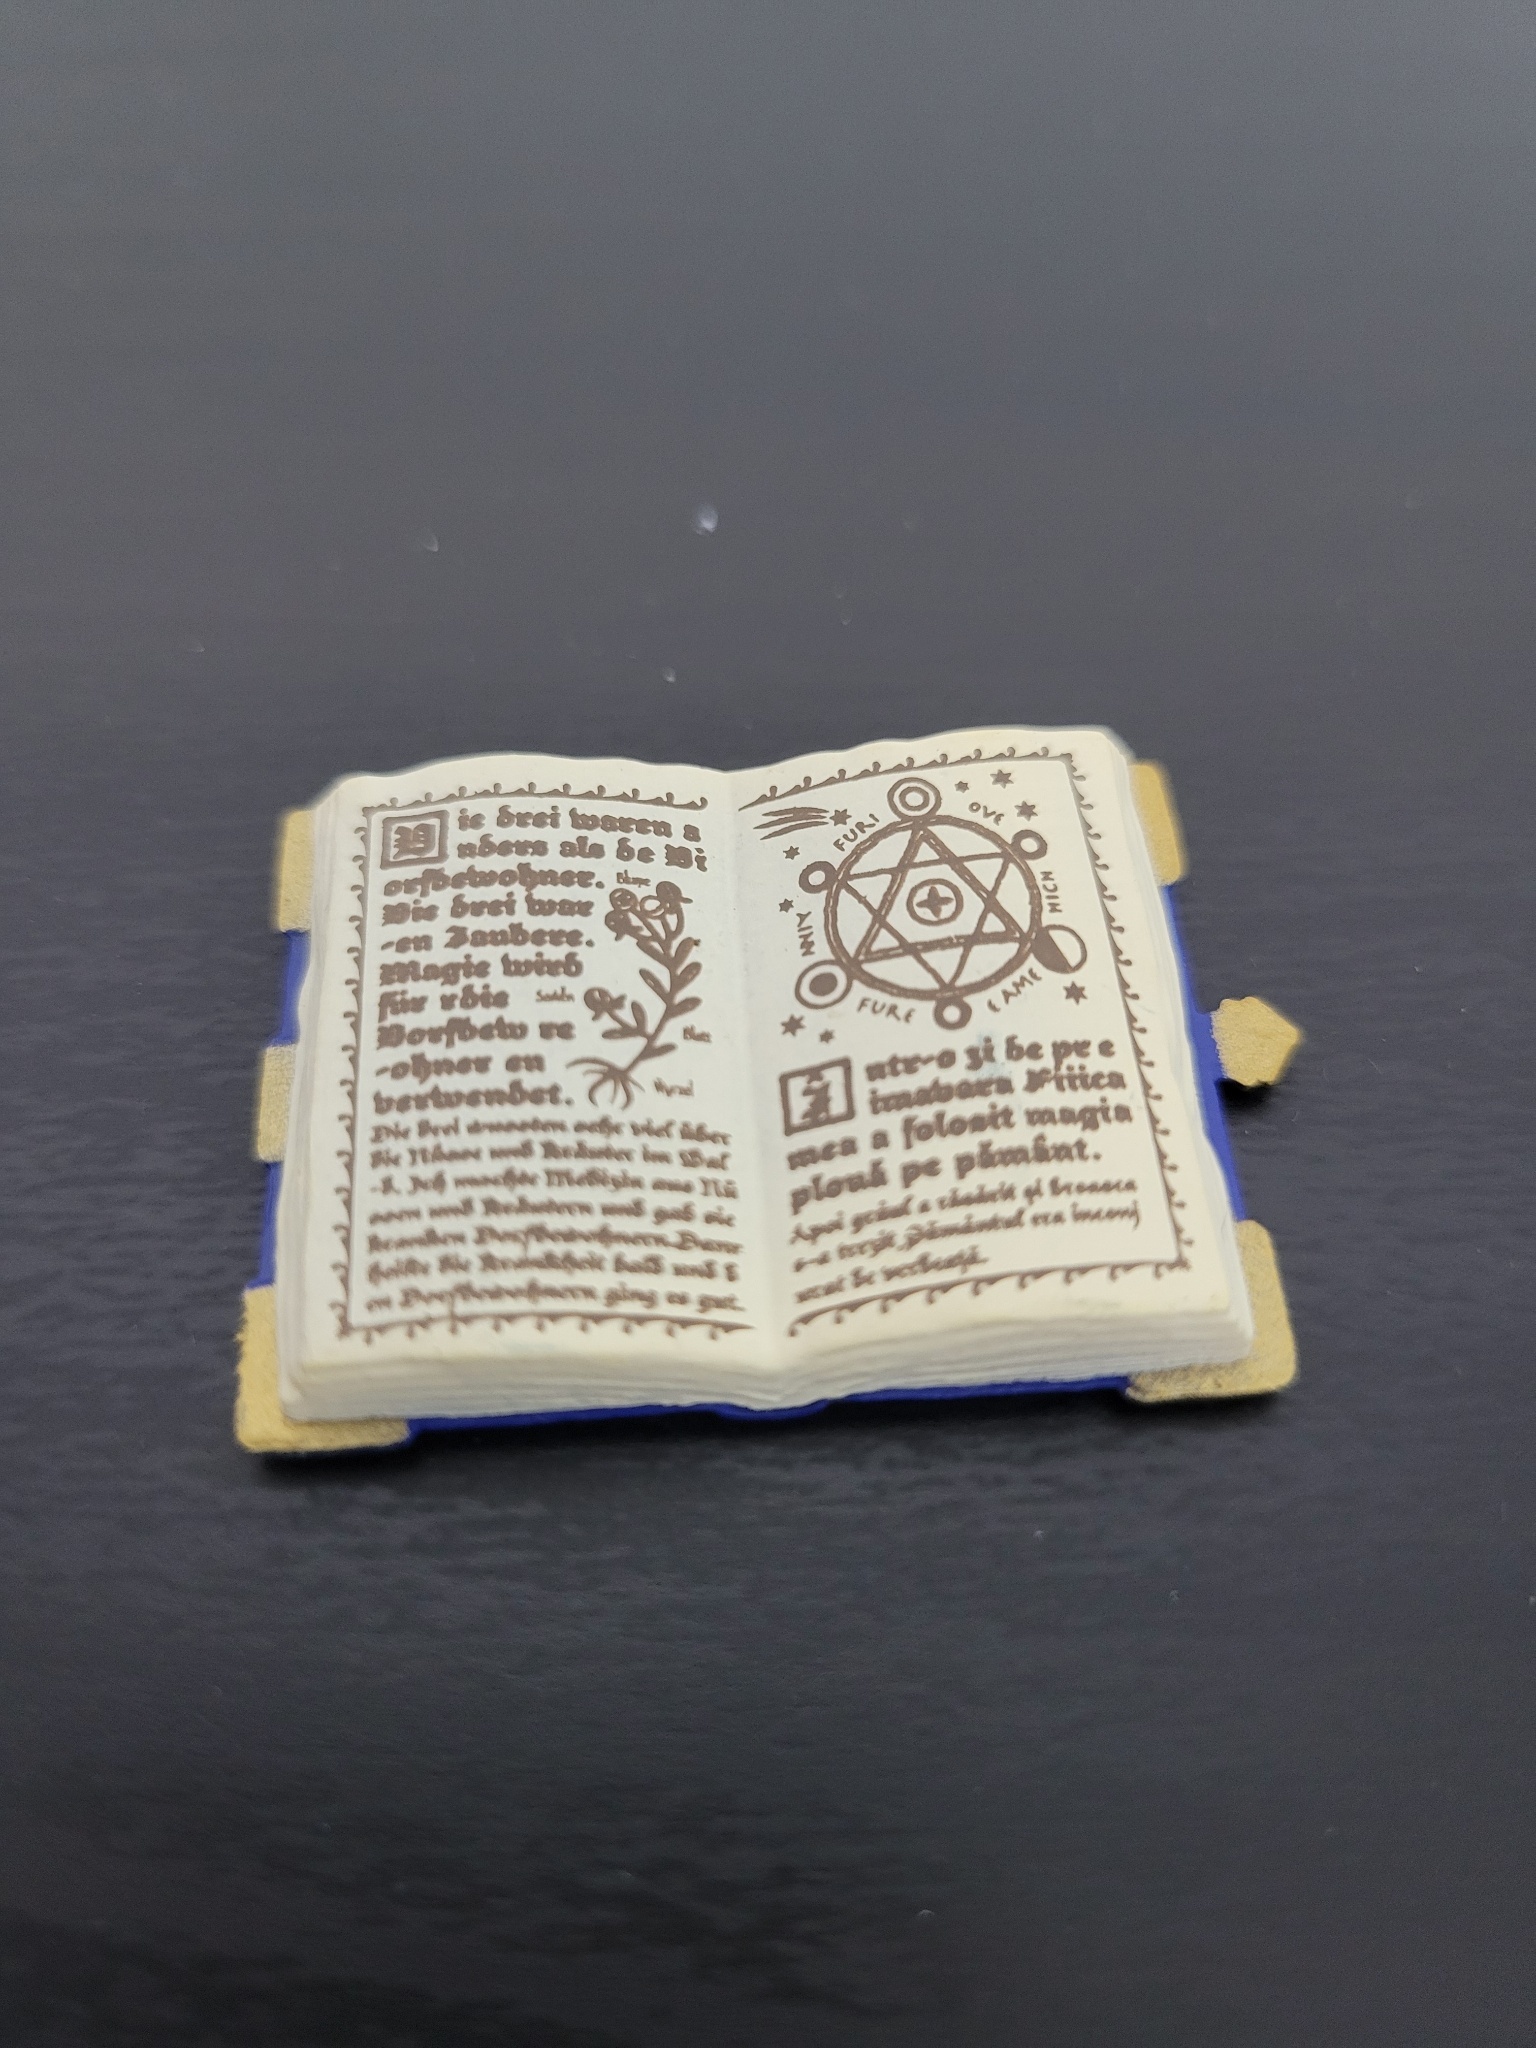 Die drei waren a
nders als de Di
orfbewohner.
Die drei war
-en Zaubere.
Magie wird
für rdie
Dorfbew re
-ohner en
verwendet.
Blume
Blatt
Die drei wussten sehr viel über
die Nüsse und Kräuter im Wal
-d. Ich machte Medizin aus Nü
ssen und Kräutern und gab sie
kranken Dorfbewohnern. Dann
heilte die Krankheit bald und d
en Dorfbewohnern ging es gut.
FURI
OVE
MICH
EAME
FURE
Într-o zi de pr e
imavara Fiiica
mea a folosit magia
plouă pe pământ.
Apoi grâul a răsărit și broasca
s-a trezit. Pământul era înconj
urat de verdeață.